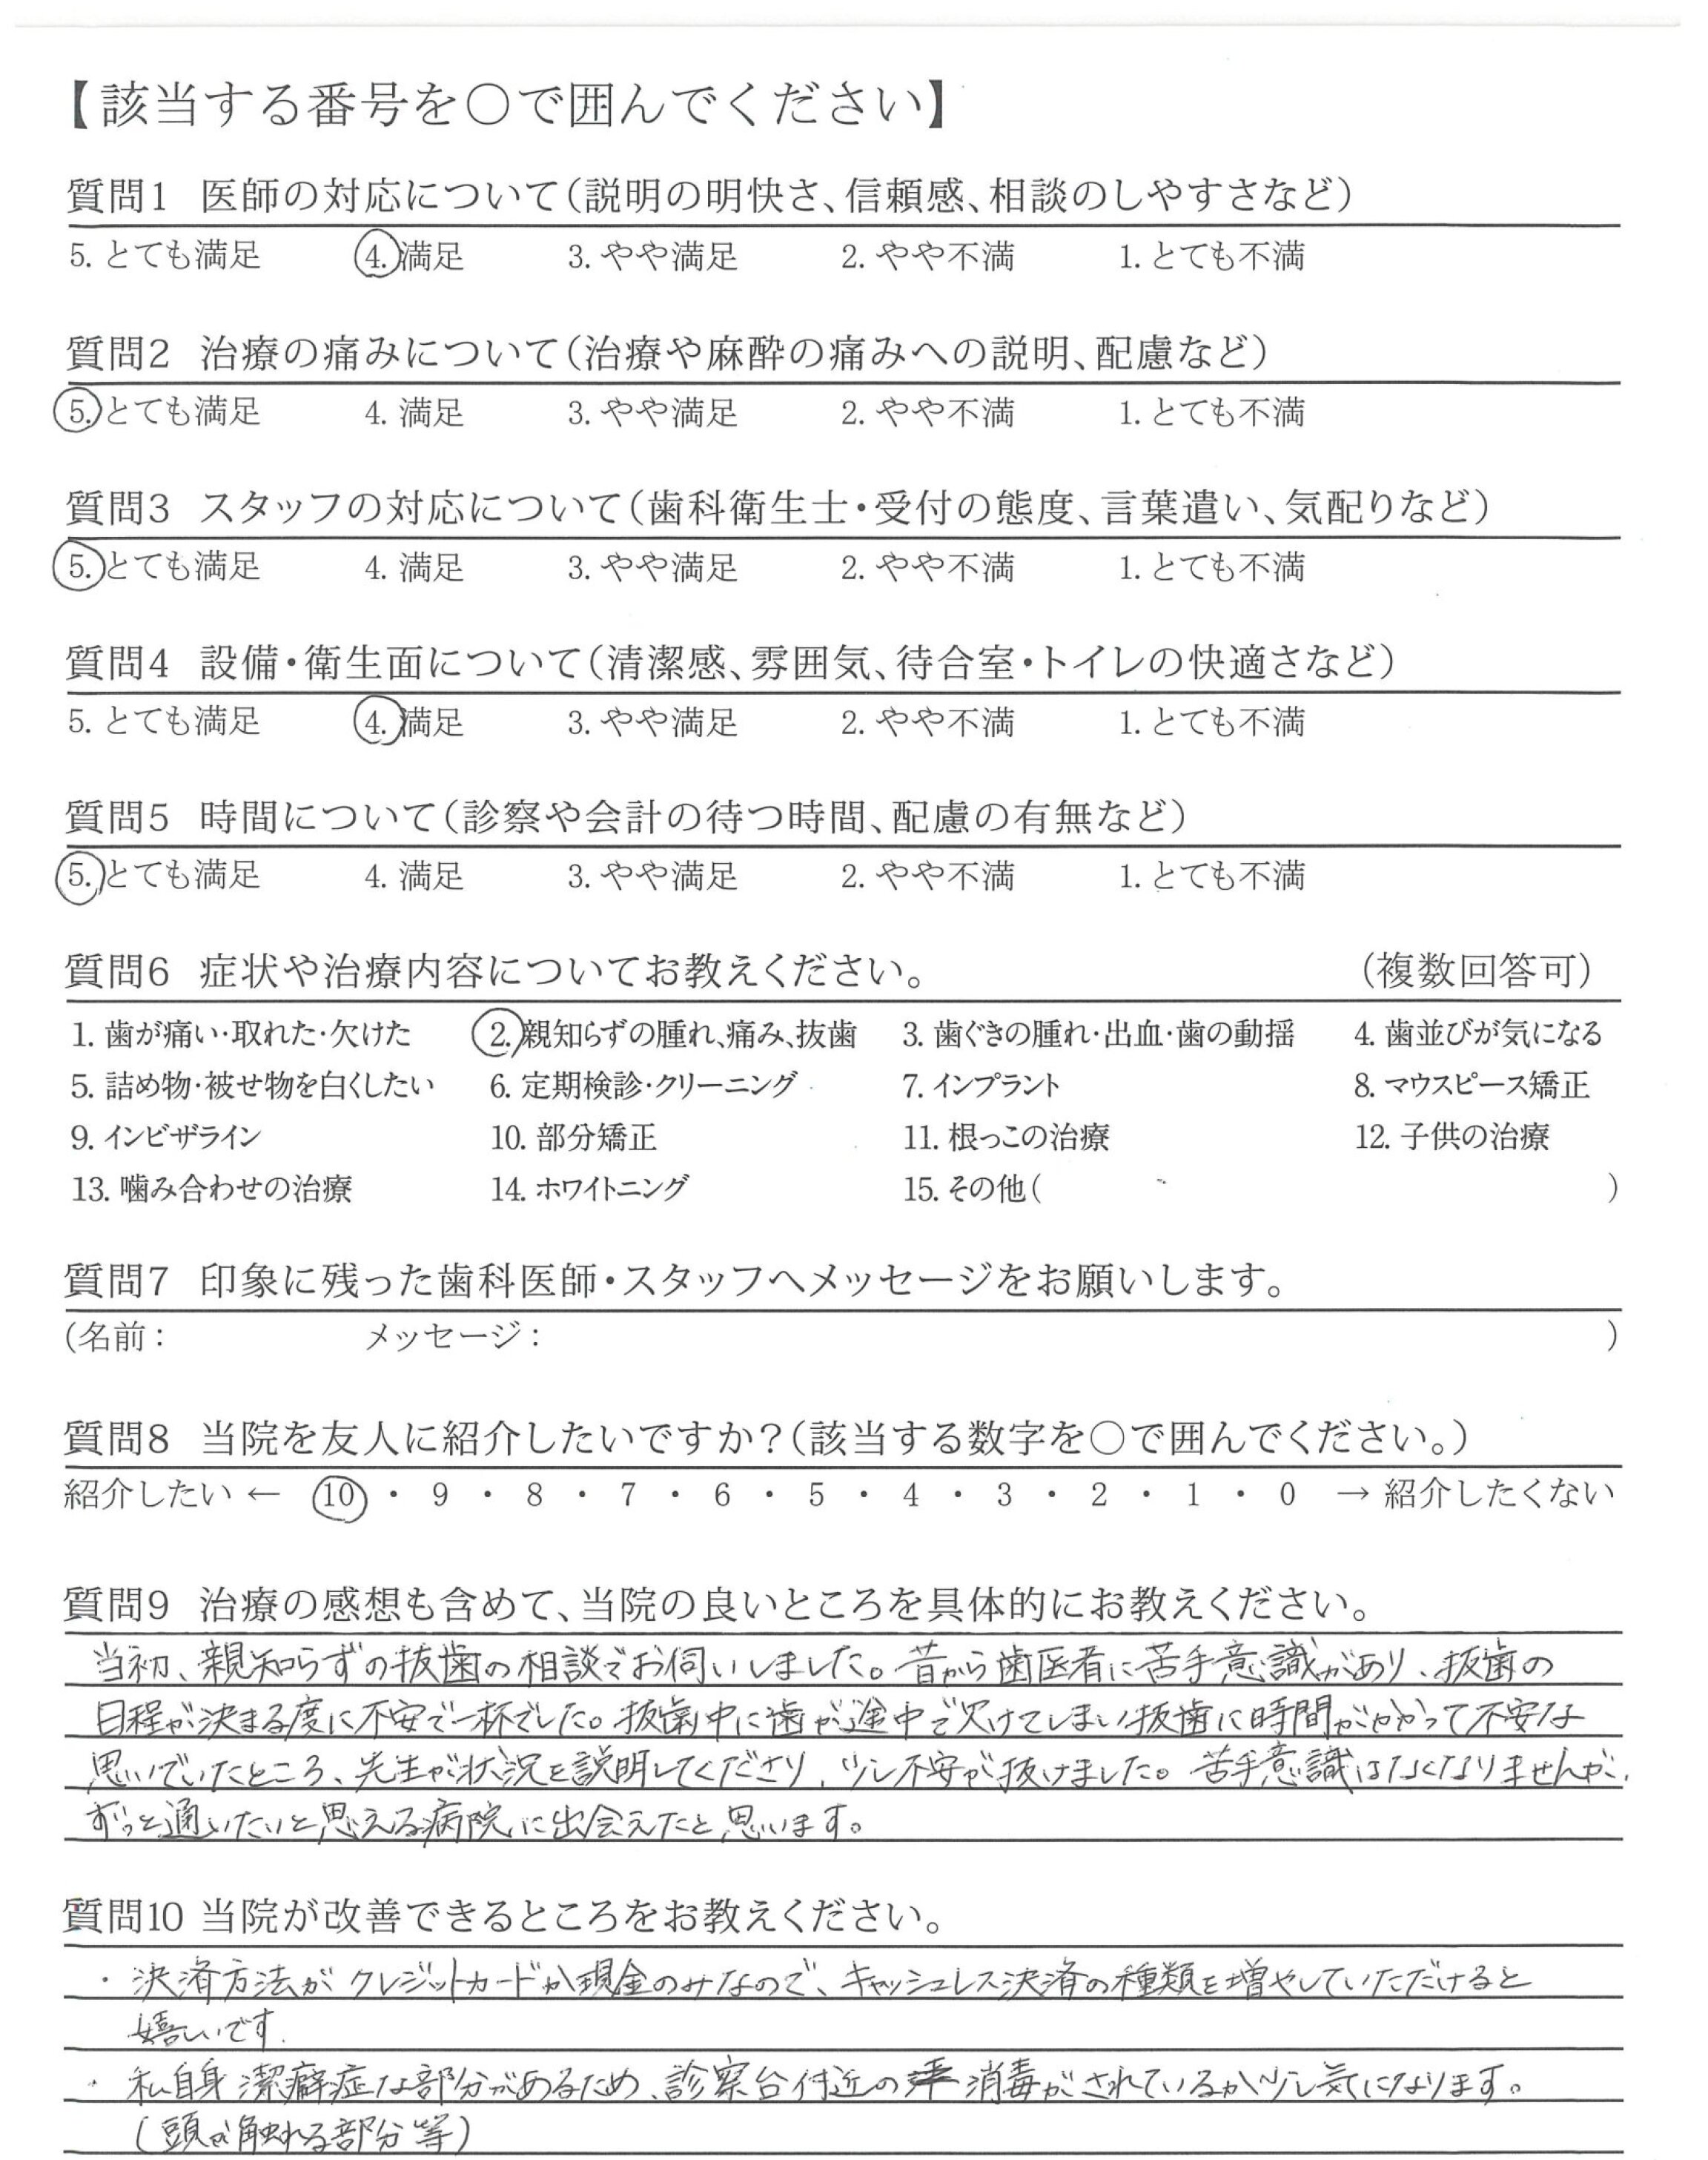 【該当する番号を〇で囲んでください】
質問1 医師の対応について(説明の明快さ、信頼感、相談のしやすさなど)
5. とても満足 4. 満足 3. やや満足 2. やや不満 1. とても不満
質問2 治療の痛みについて(治療や麻酔の痛みへの説明、配慮など)
5. とても満足 4. 満足 3. やや満足 2. やや不満 1. とても不満
質問3 スタッフの対応について(歯科衛生士・受付の態度、言葉遣い、気配りなど)
5. とても満足 4. 満足 3. やや満足 2. やや不満 1. とても不満
質問4 設備・衛生面について(清潔感、雰囲気、待合室・トイレの快適さなど)
5. とても満足 4. 満足 3. やや満足 2. やや不満 1. とても不満
質問5 時間について(診察や会計の待つ時間、配慮の有無など)
5. とても満足 4. 満足 3. やや満足 2. やや不満 1. とても不満
質問6 症状や治療内容についてお教えください。 (複数回答可)
1. 歯が痛い・取れた・欠けた 2. 親知らずの腫れ、痛み、抜歯 3. 歯ぐきの腫れ・出血・歯の動揺 4. 歯並びが気になる
5. 詰め物・被せ物を白くしたい 6. 定期検診・クリーニング 7. インプラント 8. マウスピース矯正
9. インビザライン 10. 部分矯正 11. 根っこの治療 12. 子供の治療
13. 噛み合わせの治療 14. ホワイトニング 15. その他( )
質問7 印象に残った歯科医師・スタッフへメッセージをお願いします。
(名前: メッセージ: )
質問8 当院を友人に紹介したいですか?(該当する数字を〇で囲んでください。)
紹介したい ← 10 ・ 9 ・ 8 ・ 7 ・ 6 ・ 5 ・ 4 ・ 3 ・ 2 ・ 1 ・ 0 → 紹介したくない
質問9 治療の感想も含めて、当院の良いところを具体的にお教えください。
当初、親知らずの抜歯の相談でお伺いしました。昔から歯医者に苦手意識があり、抜歯の
日程が決まる度に不安で一杯でした。抜歯中に歯が途中で欠けてしまい抜歯に時間がかかって不安な
思いでいたところ、先生が状況を説明してくださり、少し不安が抜けました。苦手意識はなくなりませんが、
ずっと通いたいと思える病院に出会えたと思います。
質問10 当院が改善できるところをお教えください。
・決済方法がクレジットカードか現金のみなので、キャッシュレス決済の種類を増やしていただけると
嬉しいです.
・私自身潔癖症な部分があるため、診察台付近の消毒がされているか少し気になります。
(頭が触れる部分等)